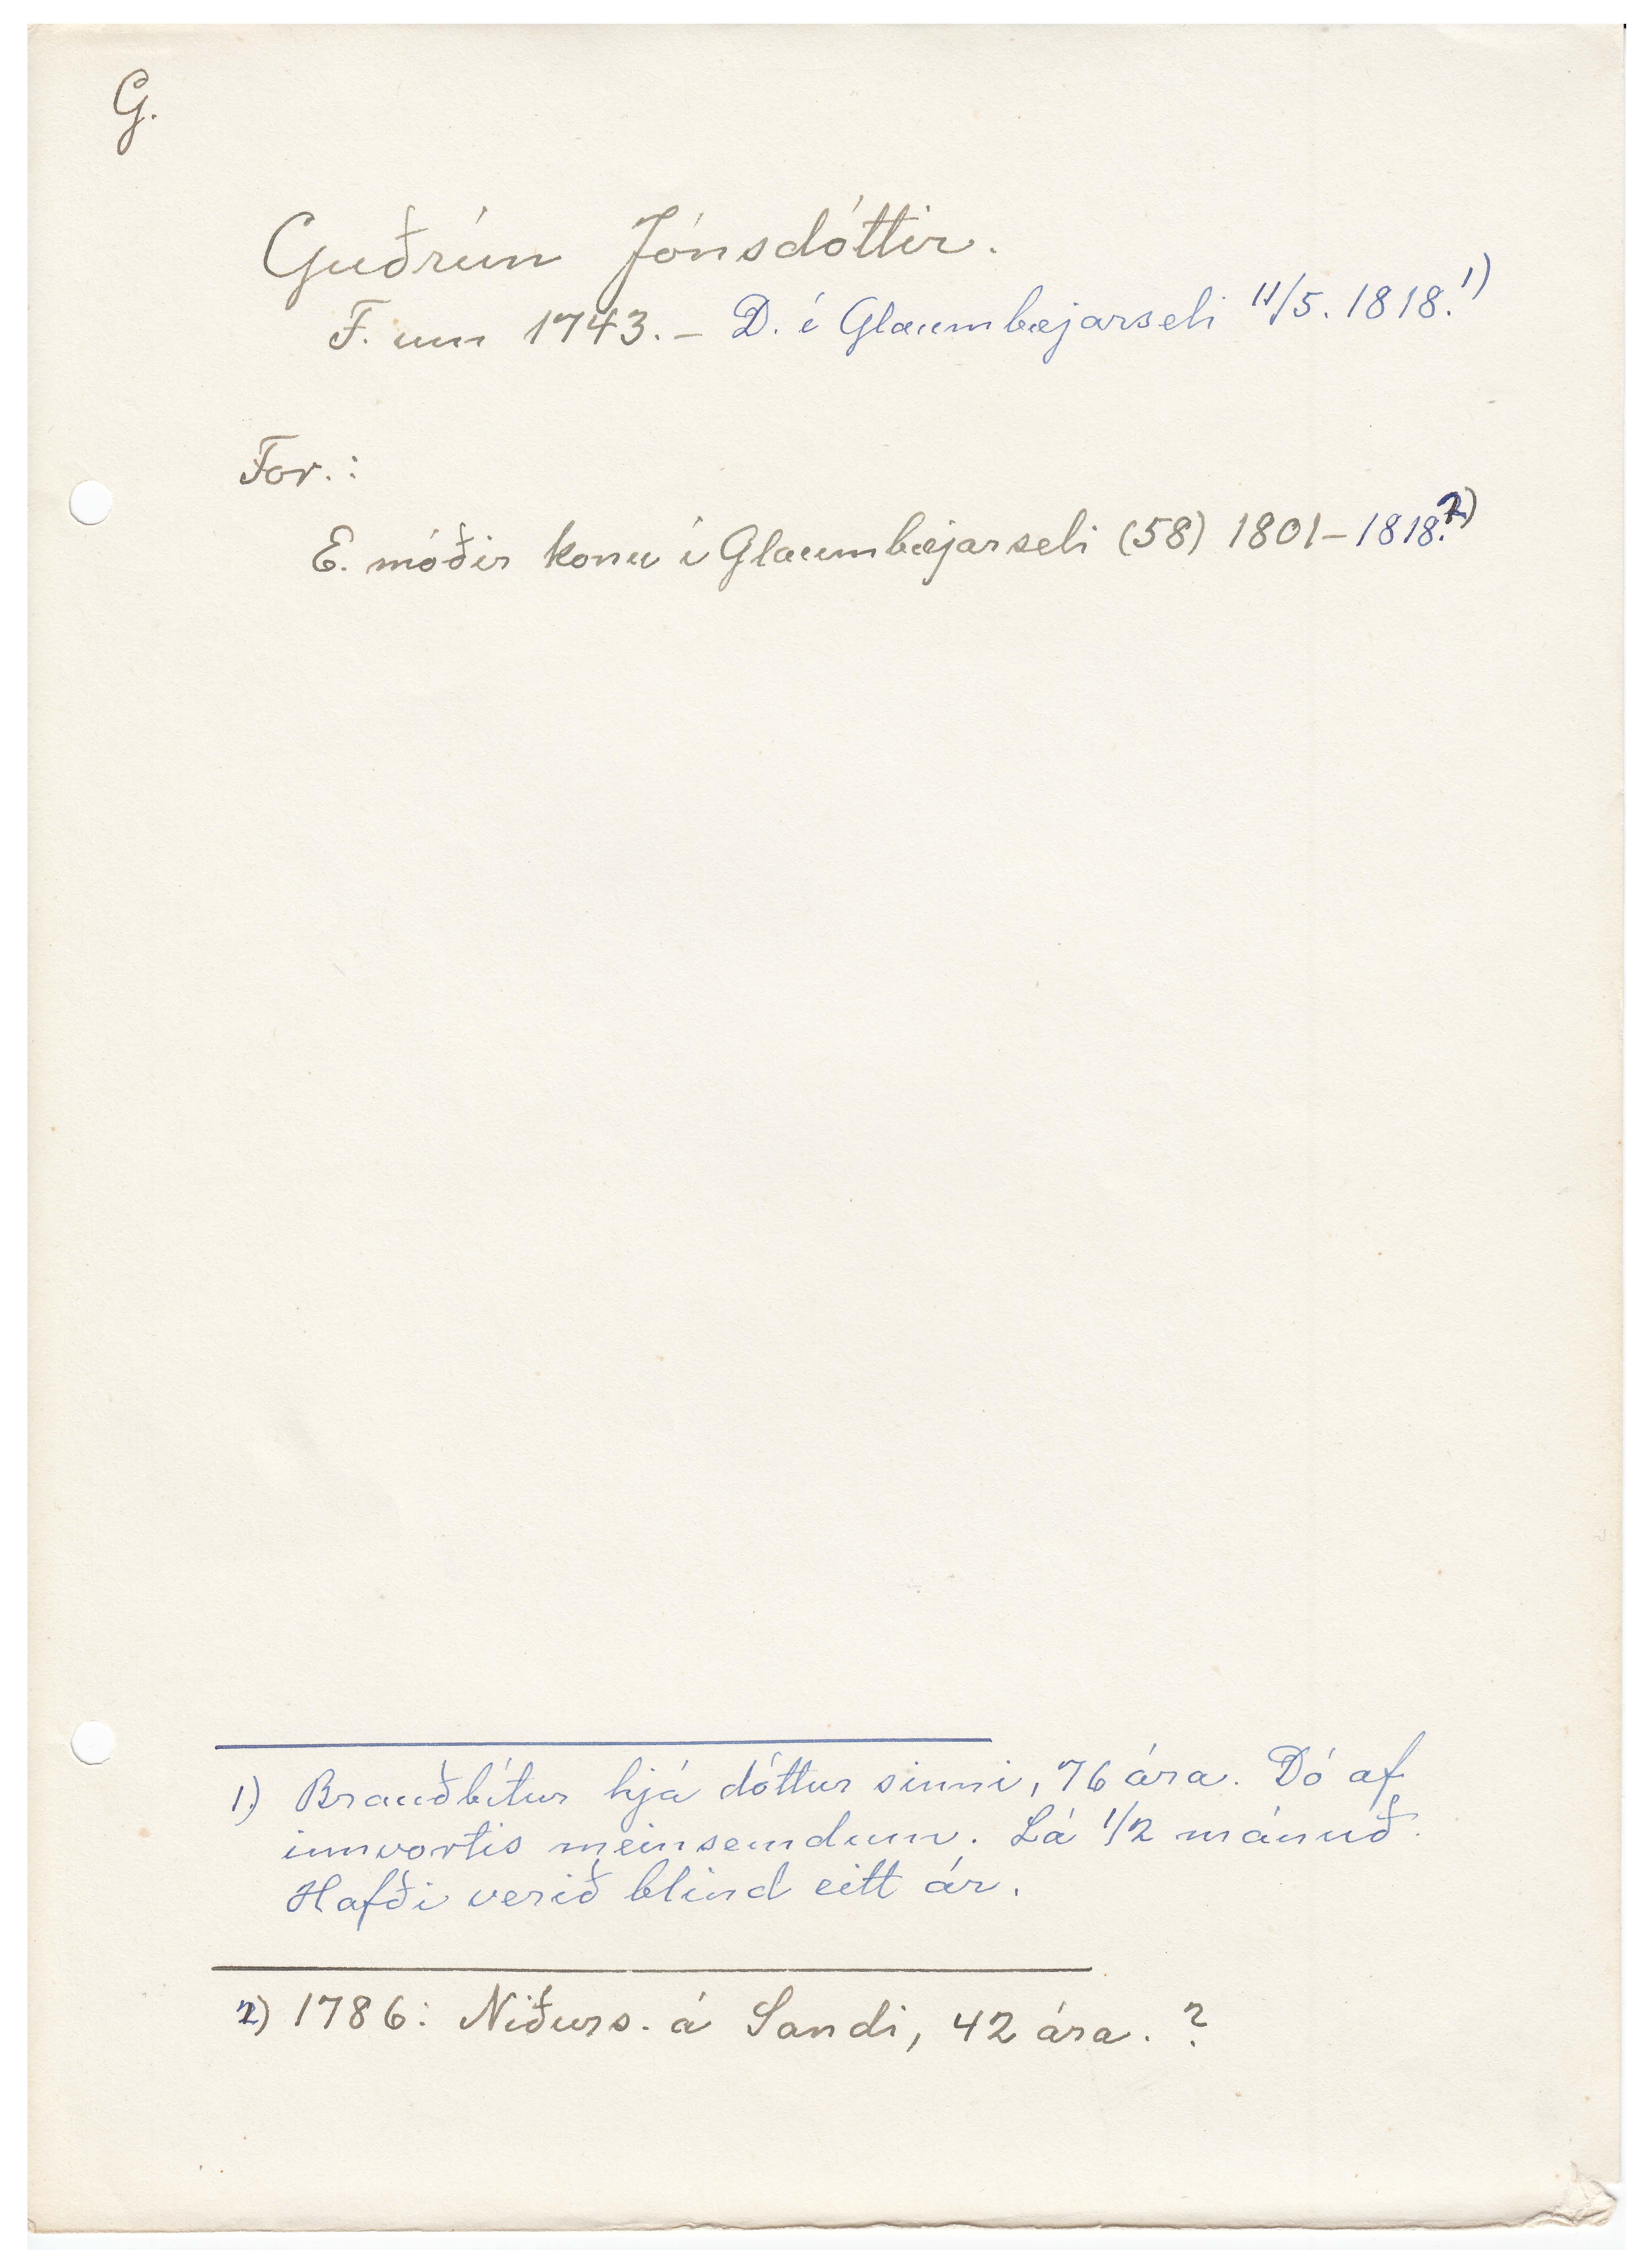 G.
Guðrún Jónsdóttir.
F. um 1743. – D. í Glaumbæjarseli 11/5. 1818.1)
For.:
E. móðir konu í Glaumbæjarseli (58) 1801–1818.2)
1.) Brauðbítur hjá dóttur sinni, 76 ára. Dó af
innvortis meinsemdum. Lá 1/2 mánuð.
Hafði verið blind eitt ár.
2) 1786: Niðurs. á Sandi, 42 ára. ?